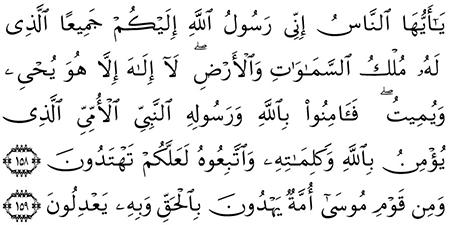 يَـٰٓأَيُّهَا ٱلنَّاسُ إِنِّى رَسُولُ ٱللَّهِ إِلَيْكُمْ جَمِيعًا ٱلَّذِى
لَهُۥ مُلْكُ ٱلسَّمَـٰوَٰتِ وَٱلْأَرْضِ ۖ لَآ إِلَـٰهَ إِلَّا هُوَ يُحْىِۦ
وَيُمِيتُ ۖ فَـَٔامِنُوا۟ بِٱللَّهِ وَرَسُولِهِ ٱلنَّبِىِّ ٱلْأُمِّىِّ ٱلَّذِى
يُؤْمِنُ بِٱللَّهِ وَكَلِمَـٰتِهِۦ وَٱتَّبِعُوهُ لَعَلَّكُمْ تَهْتَدُونَ ١٥٨
وَمِن قَوْمِ مُوسَىٰٓ أُمَّةٌ يَهْدُونَ بِٱلْحَقِّ وَبِهِۦ يَعْدِلُونَ ١٥٩